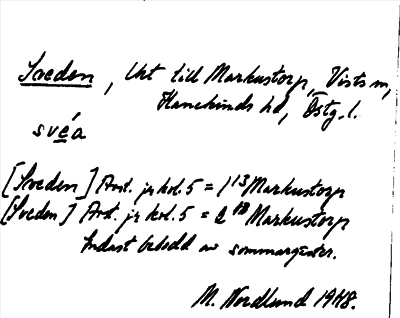 Sveden, Uht till Markustorp, Vists sn,
Hanekinds hd, Östg. l.
svéa
[Sveden] Ant. jr kol. 5 = 1 13 Markustorp
[Sveden] Ant. jr kol. 5 = 2 13 Markustorp
Endast bebodd av sommargäster.
M. Nordlund 1948.